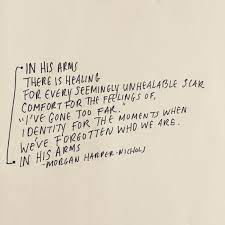 IN HIS ARMS
THERE IS HEALING
FOR EVERY SEEMINGLY UNHEALABLE SCAR
COMFORT FOR THE FEELINGS OF,
"I'VE GONE TOO FAR."
IDENTITY FOR THE MOMENTS WHEN
WE'VE FORGOTTEN WHO WE ARE.
IN HIS ARMS
-MORGAN HARPER-NICHOLS